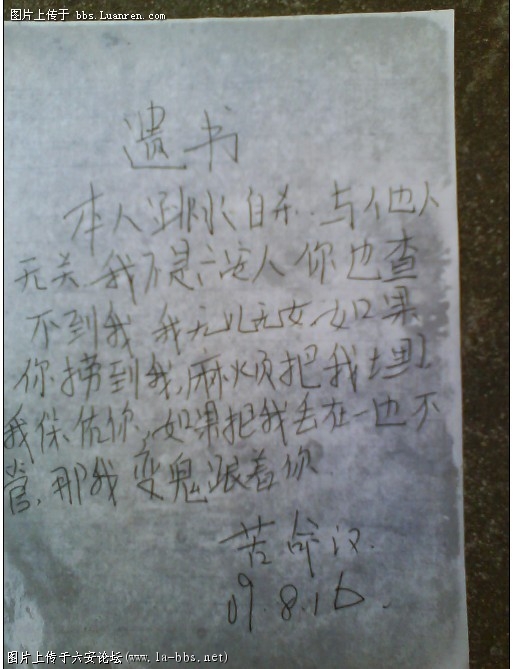 图片上传于 bbs.Luanren.com
遗书
本人跳水自杀.与他人
无关 我不是六安人 你也查
不到我 我无儿无女,如果
你捞到我,麻烦把我埋了
我保佑你,如果把我丢在一边不
管,那我变鬼跟着你
苦命汉.
09.8.16.
图片上传于六安论坛(www.la-bbs.net)